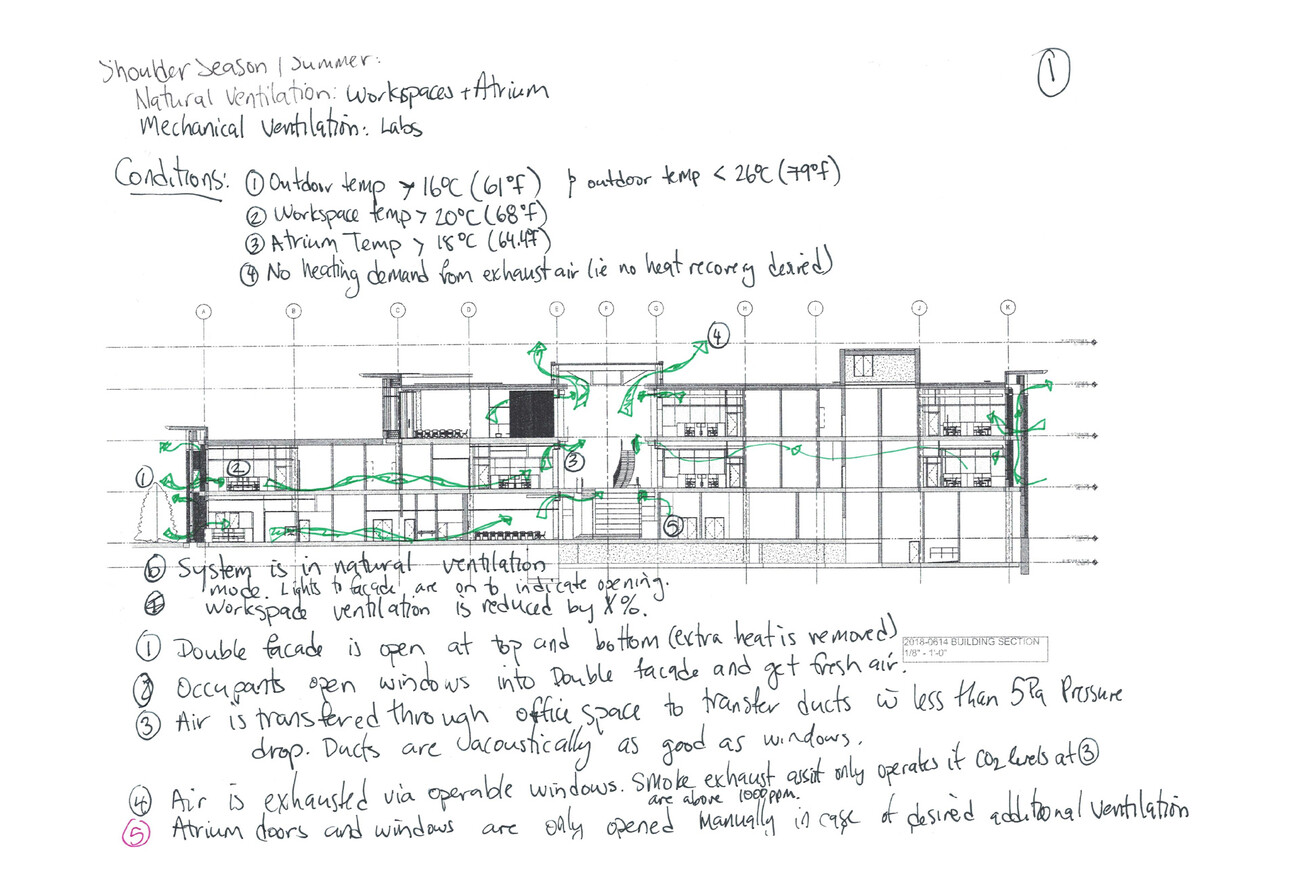 Shoulder Season / Summer:
①
Natural Ventilation: Workspaces + Atrium
Mechanical Ventilation: Labs
Conditions: ① Outdoor temp > 16°C (61°F) & outdoor temp < 26°C (79°F)
② Workspace temp > 20°C (68°F)
③ Atrium Temp > 18°C (64.4°F)
④ No heating demand from exhaust air (ie no heat recovery desired)
A B C D E F G H I J K
④
① ② ③
⑤
⑥ System is in natural ventilation
mode. Lights to facade are on to indicate opening.
Workspace ventilation is reduced by X%.
① Double facade is open at top and bottom (extra heat is removed)
2018-0614 BUILDING SECTION
1/8" - 1'-0"
② Occupants open windows into Double facade and get fresh air.
③ Air is transferred through office space to transfer ducts w less than 5Pa Pressure
drop. Ducts are "acoustically" as good as windows.
④ Air is exhausted via operable windows. Smoke exhaust assist only operates if CO2 levels at ③
are above 1000ppm.
⑤ Atrium doors and windows are only opened manually in case of desired additional ventilation